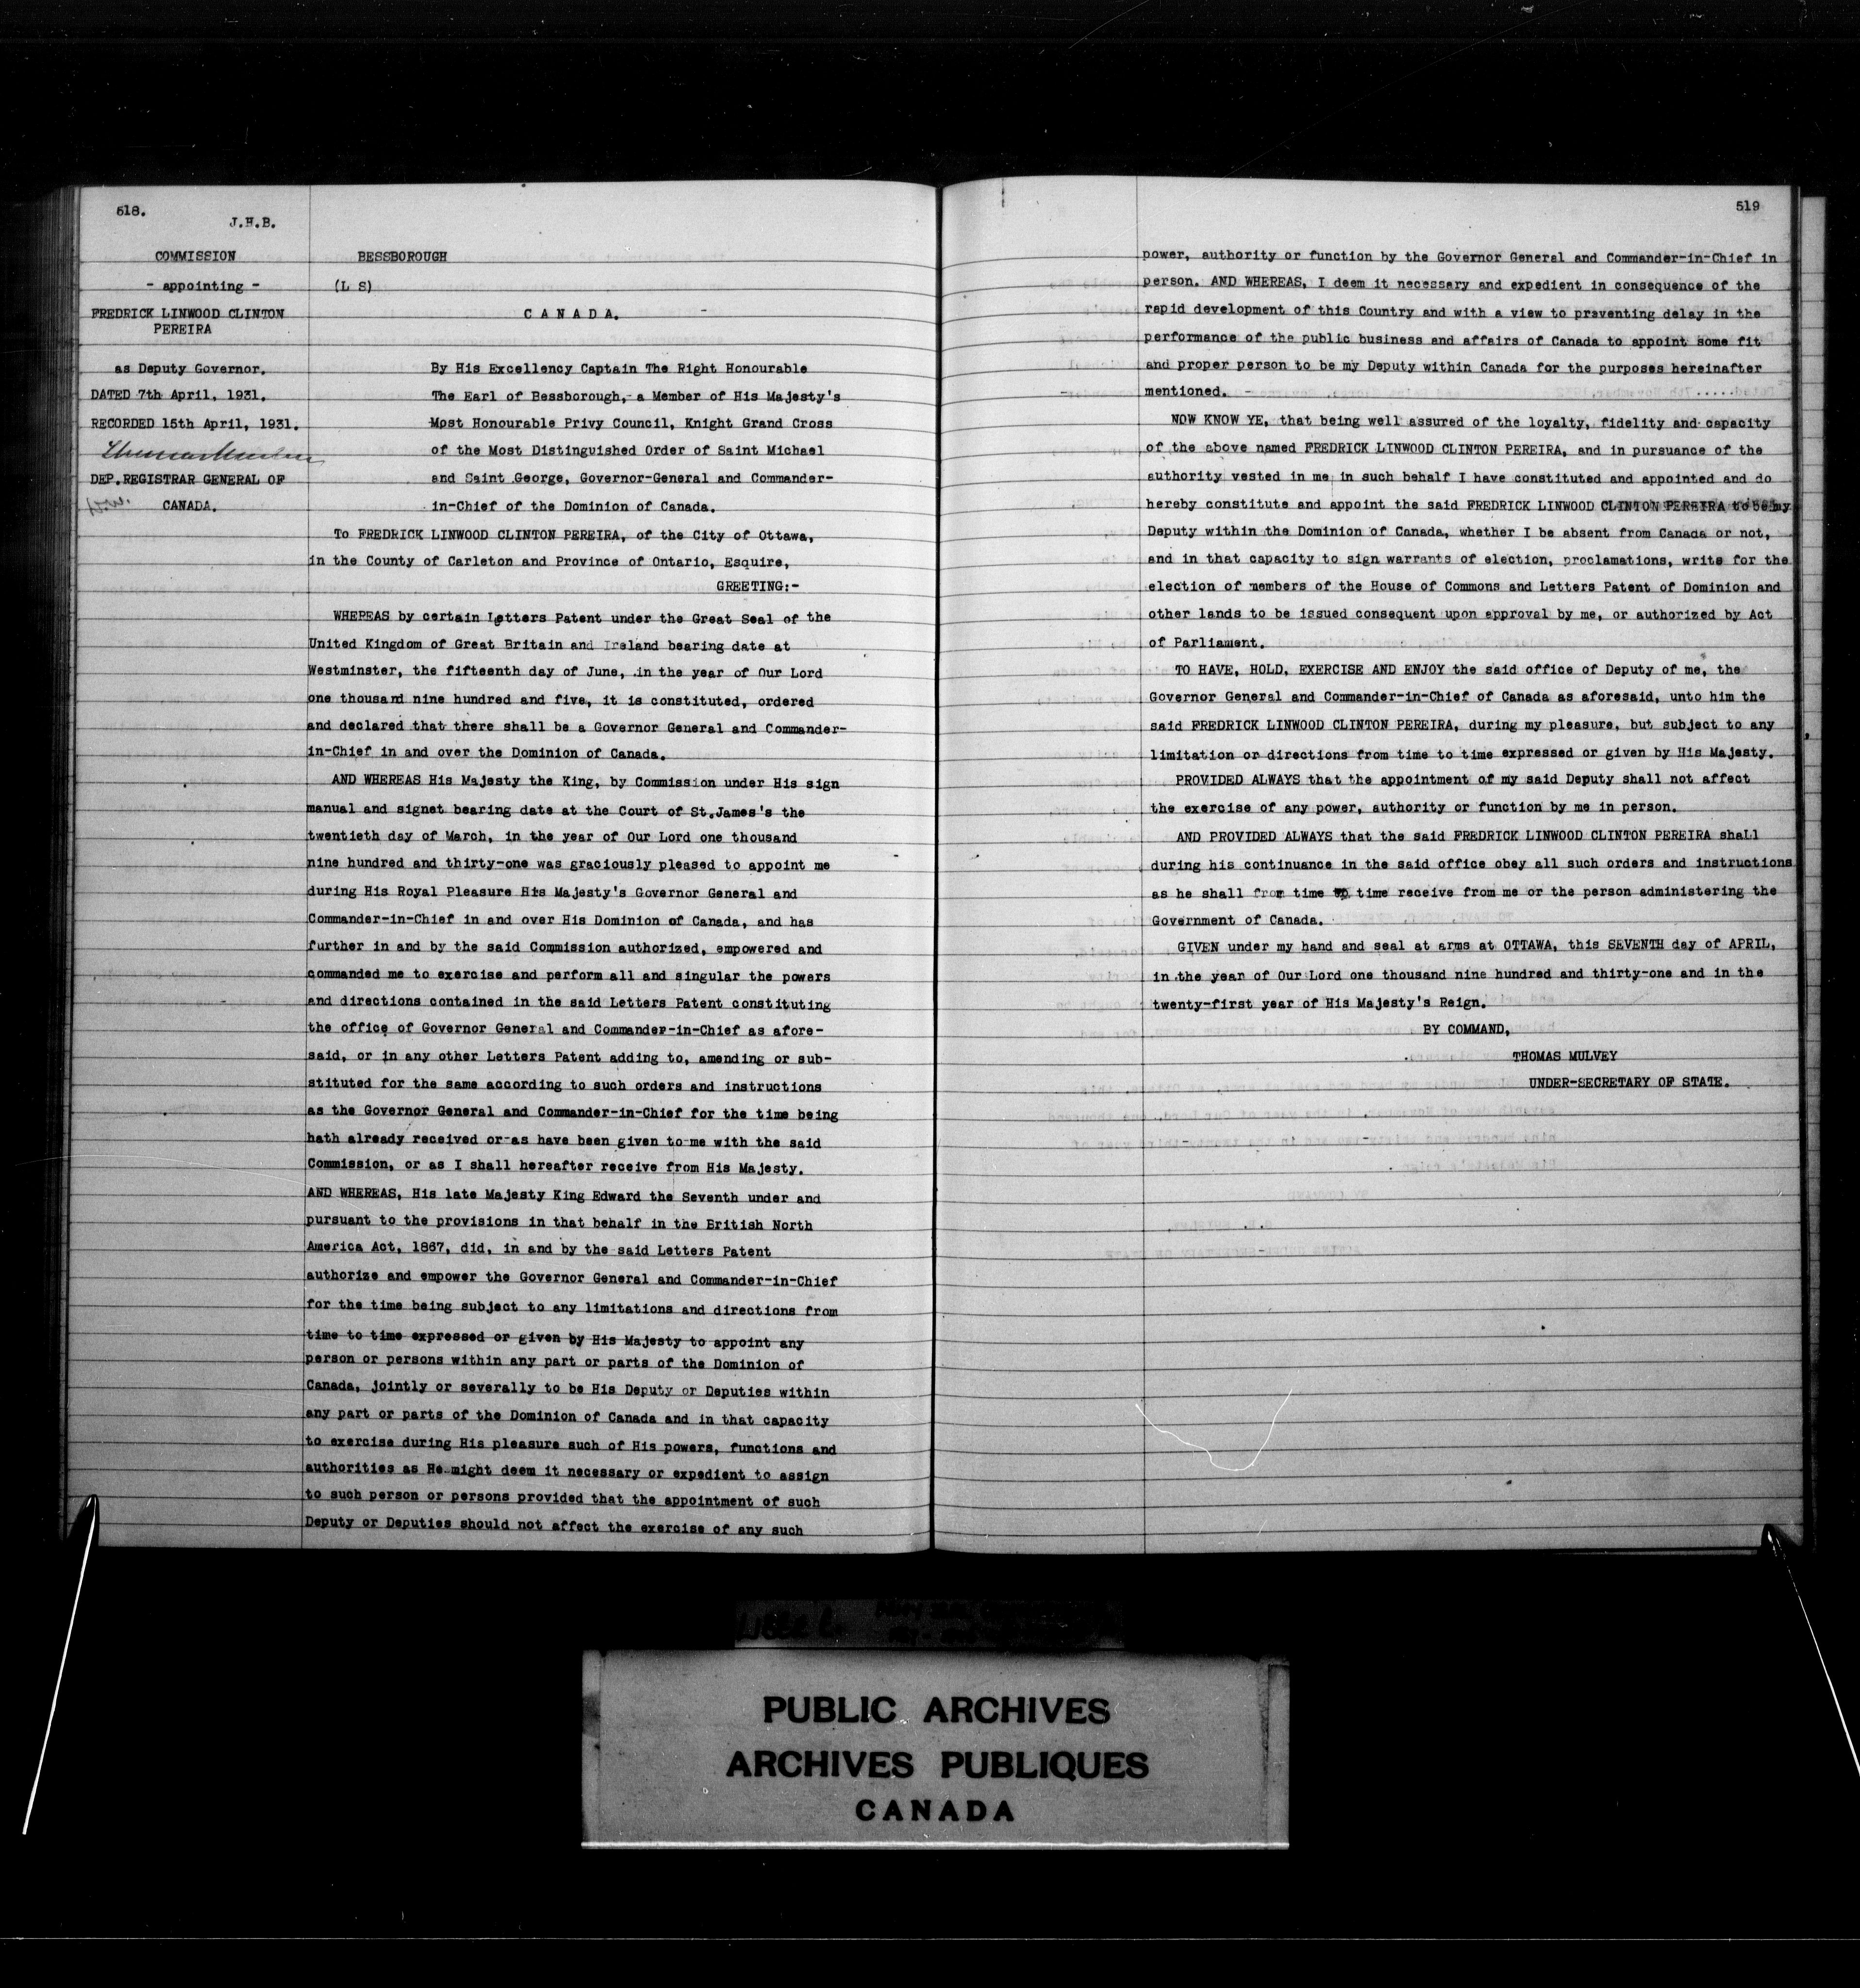 518.
J.H.B.
COMMISSION
- appointing -
FREDRICK LINWOOD CLINTON
PEREIRA
as Deputy Governor.
DATED 7th April, 1931.
RECORDED 15th April, 1931.
DEP.REGISTRAR GENERAL OF
CANADA.
BESSBOROUGH
(L S)
C A N A D A.
By His Excellency Captain The Right Honourable
The Earl of Bessborough, a Member of His Majesty's
Most Honourable Privy Council, Knight Grand Cross
of the Most Distinguished Order of Saint Michael
and Saint George, Governor-General and Commander-
in-Chief of the Dominion of Canada.
To FREDRICK LINWOOD CLINTON PEREIRA, of the City of Ottawa,
in the County of Carleton and Province of Ontario, Esquire,
GREETING:-
WHEREAS by certain Letters Patent under the Great Seal of the
United Kingdom of Great Britain and Ireland bearing date at
Westminster, the fifteenth day of June, in the year of Our Lord
one thousand nine hundred and five, it is constituted, ordered
and declared that there shall be a Governor General and Commander-
in-Chief in and over the Dominion of Canada.
AND WHEREAS His Majesty the King, by Commission under His sign
manual and signet bearing date at the Court of St.James's the
twentieth day of March, in the year of Our Lord one thousand
nine hundred and thirty-one was graciously pleased to appoint me
during His Royal Pleasure His Majesty's Governor General and
Commander-in-Chief in and over His Dominion of Canada, and has
further in and by the said Commission authorized, empowered and
commanded me to exercise and perform all and singular the powers
and directions contained in the said Letters Patent constituting
the office of Governor General and Commander-in-Chief as afore-
said, or in any other Letters Patent adding to, amending or sub-
stituted for the same according to such orders and instructions
as the Governor General and Commander-in-Chief for the time being
hath already received or as have been given to me with the said
Commission, or as I shall hereafter receive from His Majesty.
AND WHEREAS, His late Majesty King Edward the Seventh under and
pursuant to the provisions in that behalf in the British North
America Act, 1867, did, in and by the said Letters Patent
authorize and empower the Governor General and Commander-in-Chief
for the time being subject to any limitations and directions from
time to time expressed or given by His Majesty to appoint any
person or persons within any part or parts of the Dominion of
Canada, jointly or severally to be His Deputy or Deputies within
any part or parts of the Dominion of Canada and in that capacity
to exercise during His pleasure such of His powers, functions and
authorities as He might deem it necessary or expedient to assign
to such person or persons provided that the appointment of such
Deputy or Deputies should not affect the exercise of any such
519
power, authority or function by the Governor General and Commander-in-Chief in
person. AND WHEREAS, I deem it necessary and expedient in consequence of the
rapid development of this Country and with a view to preventing delay in the
performance of the public business and affairs of Canada to appoint some fit
and proper person to be my Deputy within Canada for the purposes hereinafter
mentioned.
NOW KNOW YE, that being well assured of the loyalty, fidelity and capacity
of the above named FREDRICK LINWOOD CLINTON PEREIRA, and in pursuance of the
authority vested in me in such behalf I have constituted and appointed and do
hereby constitute and appoint the said FREDRICK LINWOOD CLINTON PEREIRA to be my
Deputy within the Dominion of Canada, whether I be absent from Canada or not,
and in that capacity to sign warrants of election, proclamations, write for the
election of members of the House of Commons and Letters Patent of Dominion and
other lands to be issued consequent upon approval by me, or authorized by Act
of Parliament.
TO HAVE, HOLD, EXERCISE AND ENJOY the said office of Deputy of me, the
Governor General and Commander-in-Chief of Canada as aforesaid, unto him the
said FREDRICK LINWOOD CLINTON PEREIRA, during my pleasure, but subject to any
limitation or directions from time to time expressed or given by His Majesty.
PROVIDED ALWAYS that the appointment of my said Deputy shall not affect
the exercise of any power, authority or function by me in person.
AND PROVIDED ALWAYS that the said FREDRICK LINWOOD CLINTON PEREIRA shall
during his continuance in the said office obey all such orders and instructions
as he shall from time to time receive from me or the person administering the
Government of Canada.
GIVEN under my hand and seal at arms at OTTAWA, this SEVENTH day of APRIL,
in the year of Our Lord one thousand nine hundred and thirty-one and in the
twenty-first year of His Majesty's Reign.
BY COMMAND,
THOMAS MULVEY
UNDER-SECRETARY OF STATE.
PUBLIC ARCHIVES
ARCHIVES PUBLIQUES
CANADA